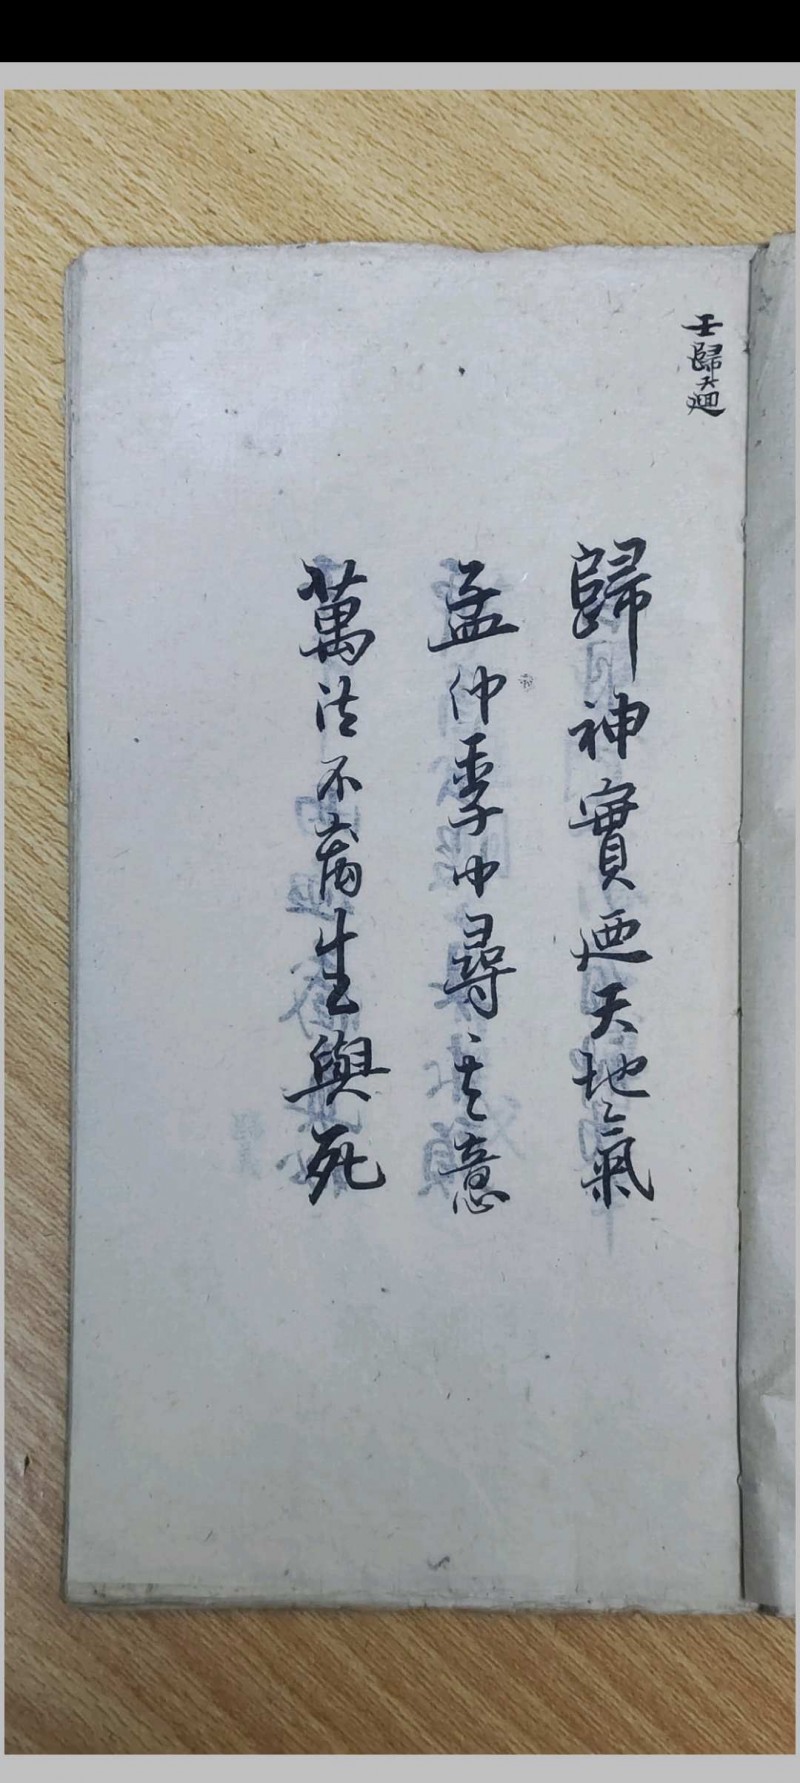 壬歸天迴
歸神實迺天地之氣
孟仲季中尋其意
萬法不育生與死